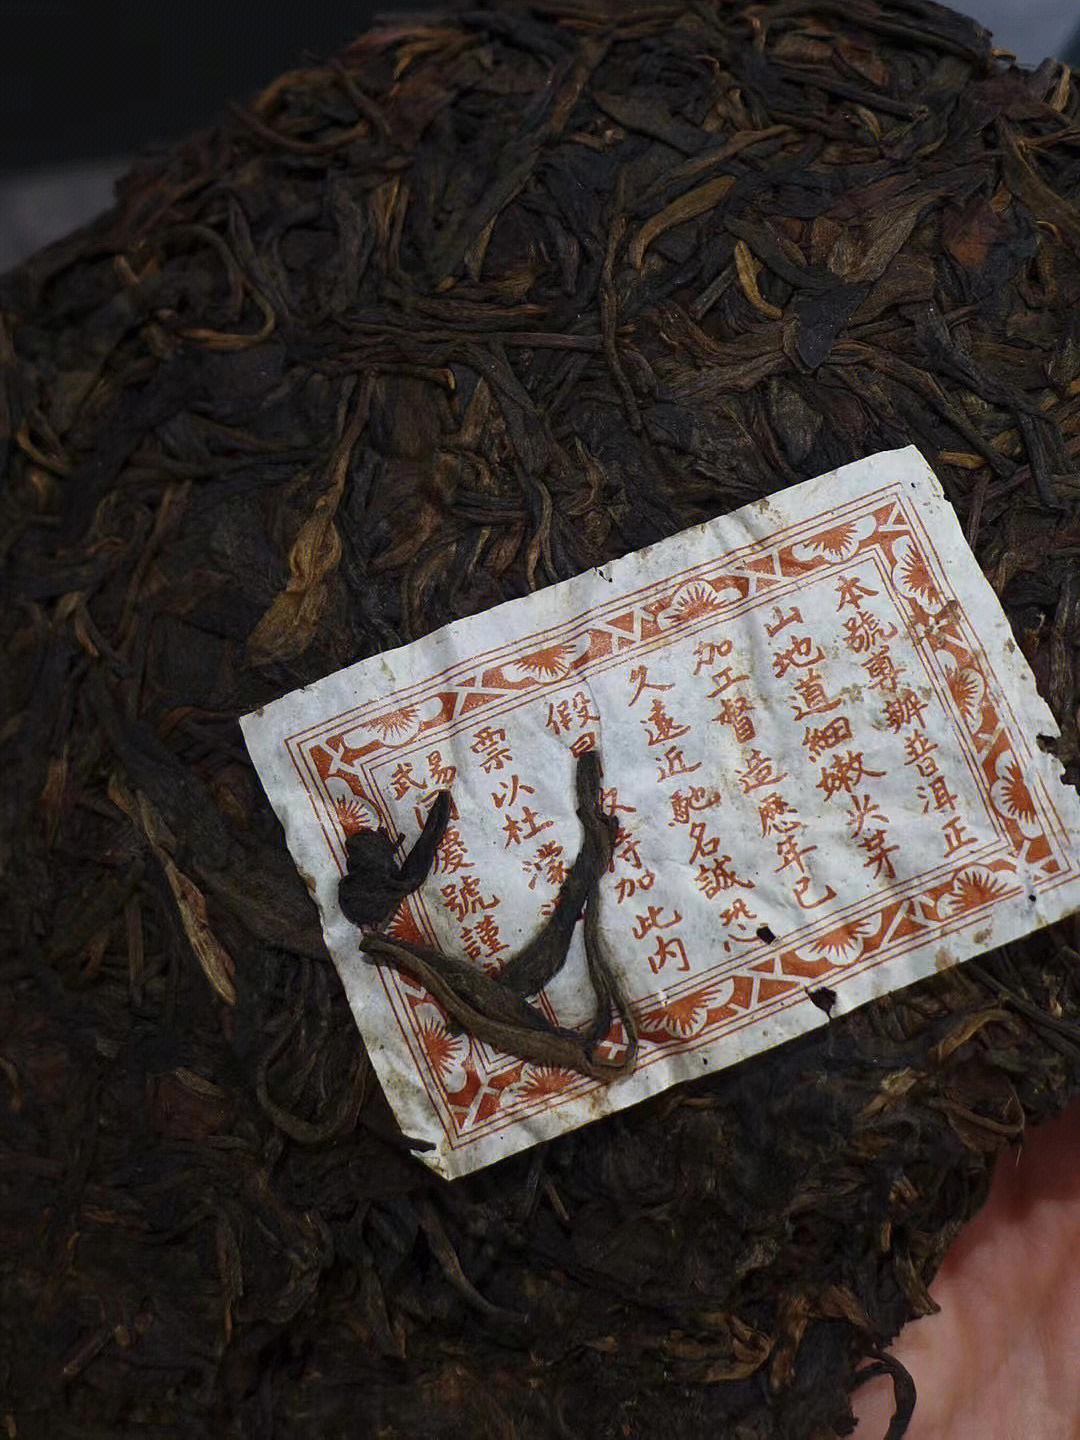 本號專辦普洱正
山地道細嫩尖芽
加工督造歷年已
久遠近馳名誠恐
假加此內
票以杜濛
易武
慶號謹